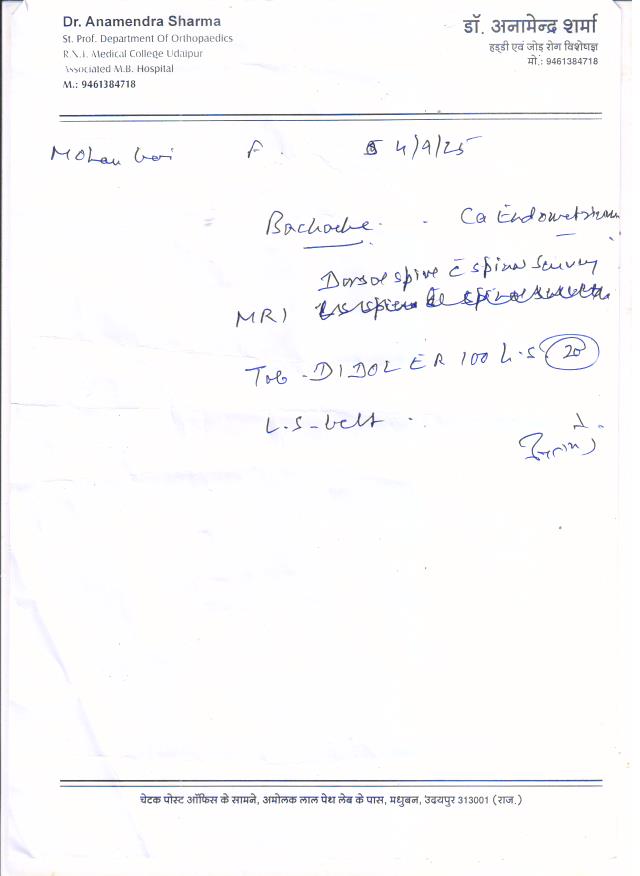 Dr. Anamendra Sharma
St. Prof. Department Of Orthopaedics
R.N.T. Medical College Udaipur
Associated M.B. Hospital
M.: 9461384718
डॉ. अनामेन्द्र शर्मा
हड्डी एवं जोड़ रोग विशेषज्ञ
मो.: 9461384718
Mohan bai F. 4/9/25
Backache. - Ca Endometrium
Dorsal spine c̄ spinal survey
MRI
Tab - DIDOL ER 100 H.S 20
L.S-belt
चेटक पोस्ट ऑफिस के सामने, अमोलक लाल पेथ लेब के पास, मधुबन, उदयपुर 313001 (राज.)